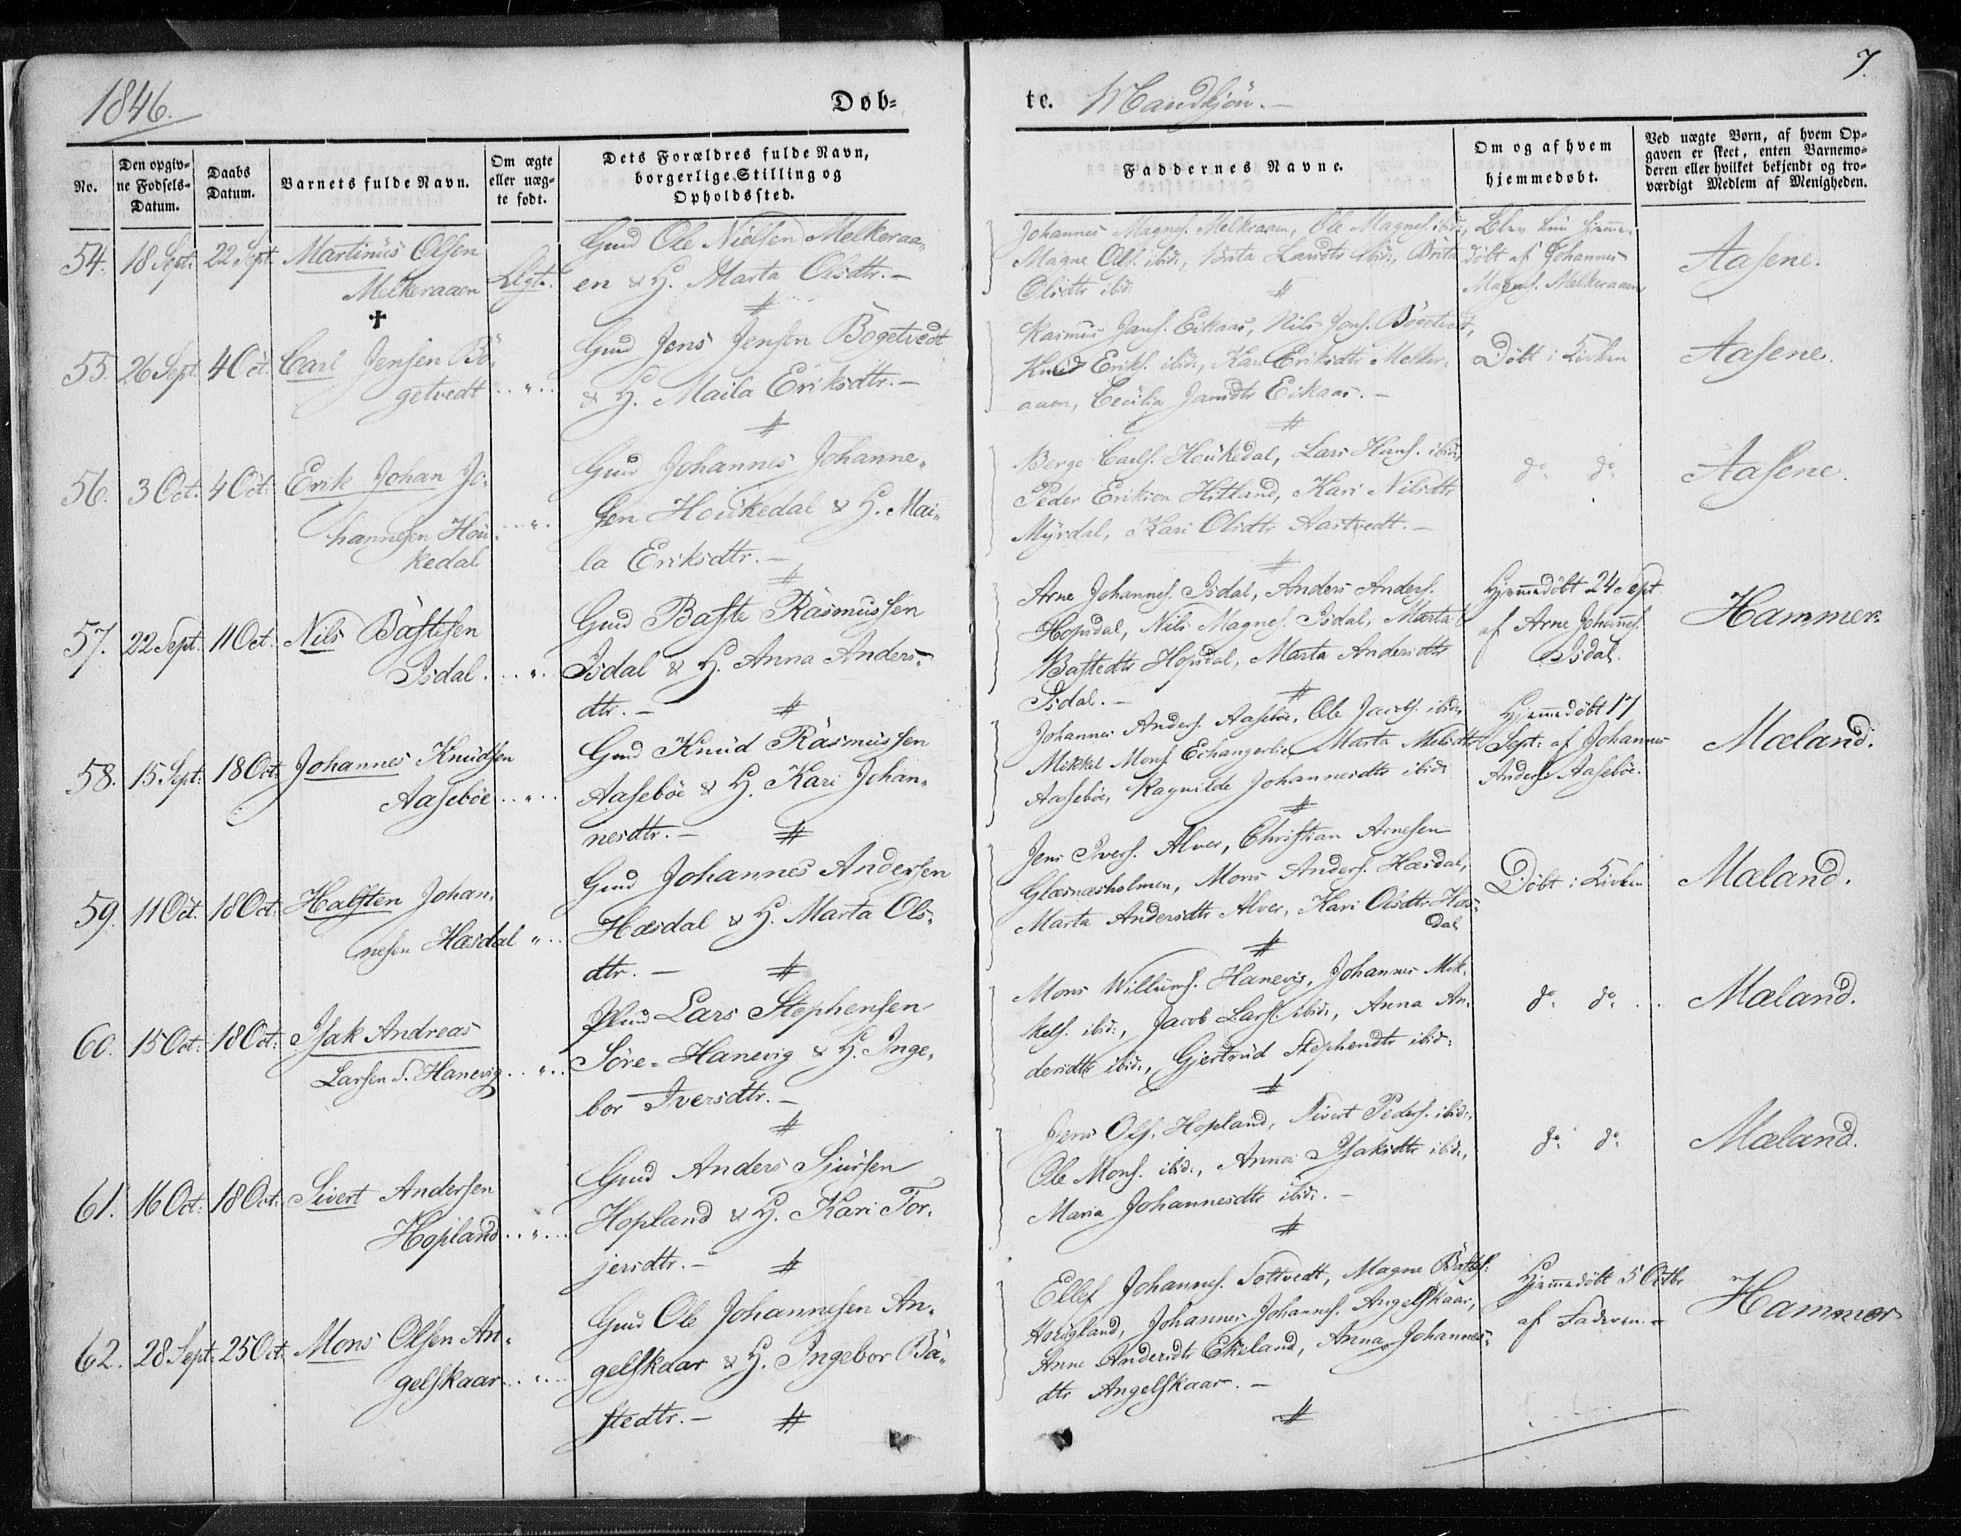 1846.
Døb-
te. Mandkjön. -
7.
No.
Den opgiv-
ne Fødsels-
Datum.
Daabs
Datum.
Barnets fulde Navn.
Om ægte
eller uæg-
te født.
Dets Forældres fulde Navn,
borgerlige Stilling og
Opholdssted.
Faddernes Navne.
Om og af hvem
hjemmedøbt.
Ved uægte Børn, af hvem Op-
gaven er skeet, enten Barnemo-
deren eller hvilket bekjendt og tro-
værdigt Medlem af Menigheden.
54. 18 Sept. 22 Sept. Martinus Olsen
Melkeraaen
Ægt.
Gmd Ole Nielsen Melkeraa-
en & H. Marta Olsdtr. -
Johannes Magnes. Melkraaen, Ole Magnes. ibid.,
Magne Ols. ibid., Brita Larsdtr ibid., Brita
Olsdtr ibid.
døbt af Johannes
Magnes. Melkeraaen
Aasene.
55. 26 Sept. 4 Oct. Carl Jensen Bö-
getvedt
Gmd Jens Jensen Bögetvedt
& H. Maila Eriksdtr. -
Rasmus Jans. Eikaas, Nils Jons. Bögetvedt,
Knud Eriks. ibid., Kari Eriksdtr Melker-
aaen, Cecilia Jansdtr Eikaas. -
Döbt i Kirken
Aasene.
56. 3 Oct. 4 Oct. Erik Johan Jo-
hannesen Hou-
kedal
Gmd Johannes Johanne-
sen Houkedal & H. Mai-
la Eriksdtr. -
Berge Carls. Houkedal, Lars Hans. ibid.,
Peder Erikson Hitland, Kari Nilsdtr
Myrdal, Kari Olsdtr Aastvedt. -
do. do.
Aasene.
57. 22 Sept. 11 Oct. Nils Bastesen
Isdal
Gmd Baste Rasmussen
Isdal & H. Anna Anders-
dtr. -
Arne Johannes. Isdal, Anders Anders.
Hopsdal, Nils Magnes. Isdal, Marta
Bastedtr Hopsdal, Marta Andersdtr
Isdal. -
Hjemmedöbt 24 Sept.
af Arne Johannes.
Isdal.
Hammer.
58. 15 Sept. 18 Oct. Johannes Knudsen
Aaseböe
Gmd Knud Rasmussen
Aaseböe & H. Kari Johan-
nesdtr. -
Johannes Anders. Aaseböe, Ole Jacobs. ibid.,
Mikkel Mons. Echangerlien, Marta Nilsdtr
Aaseböe, Ragnilde Johannesdtr ibid.
Hjemmedöbt 17
Sept. af Johannes
Anders. Aaseböe.
Mæland.
59. 11 Oct. 18 Oct. Halsten Johan-
nesen Hæsdal
Gmd Johannes Andersen
Hæsdal & H. Marta Ols-
dtr. -
Jens Ivers. Alver, Christian Arnesen
Glæsnæsholmen, Mons Anders. Hæsdal,
Marta Andersdtr Alver, Kari Olsdtr Hæs-
dal
Döbt i Kirken
Mæland.
60. 15 Oct. 18 Oct. Isak Andreas
Larsen S. Hanevig
Lars Stephensen
Söre-Hanevig & H. Inge-
bor Iversdtr. -
Mons Willums. Hanevig, Johannes Mik-
kels. ibid., Jacob Lars. ibid., Anna An-
dersdtr ibid., Gjertrud Stephensdtr ibid.
do. do.
Mæland.
61. 16 Oct. 18 Oct. Sivert Andersen
Hopland
Gmd Anders Sjursen
Hopland & H. Kari Tor-
jersdtr. -
Jens Ols. Hopland, Sivert Peders. ibid.,
Ole Mons. ibid., Anna Isaksdtr ibid.,
Maria Johannesdtr ibid. -
do. do.
Mæland.
62. 28 Sept. 25 Oct. Mons Olsen An-
gelskaar
Gmd Ole Johannesen An-
gelskaar & H. Ingebor Ba-
stedtr. -
Ellef Johannes. Toftvedt, Magne Bastes.
Hougland, Johannes Johannes. Angelskaar,
Anne Andersdtr Ekeland, Anna Johannes-
dtr Angelskaar. -
Hjemmedöbt 5 Octbr
af Faderen. -
Hammer